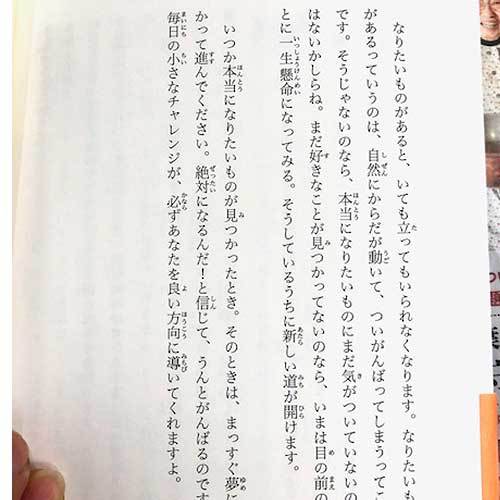 なりたいものがあると、いても立ってもいられなくなります。なりたいも
があるっていうのは、自然にからだが動いて、ついがんばってしまうってこ
です。そうじゃないのなら、本当になりたいものにまだ気がついていないの
はないかしらね。まだ好きなことが見つかってないのなら、いまは目の前の
とに一生懸命になってみる。そうしているうちに新しい道が開けます。
いつか本当になりたいものが見つかったとき。そのときは、まっすぐ夢に
かって進んでください。絶対になるんだ！と信じて、うんとがんばるのです
毎日の小さなチャレンジが、必ずあなたを良い方向に導いてくれますよ。